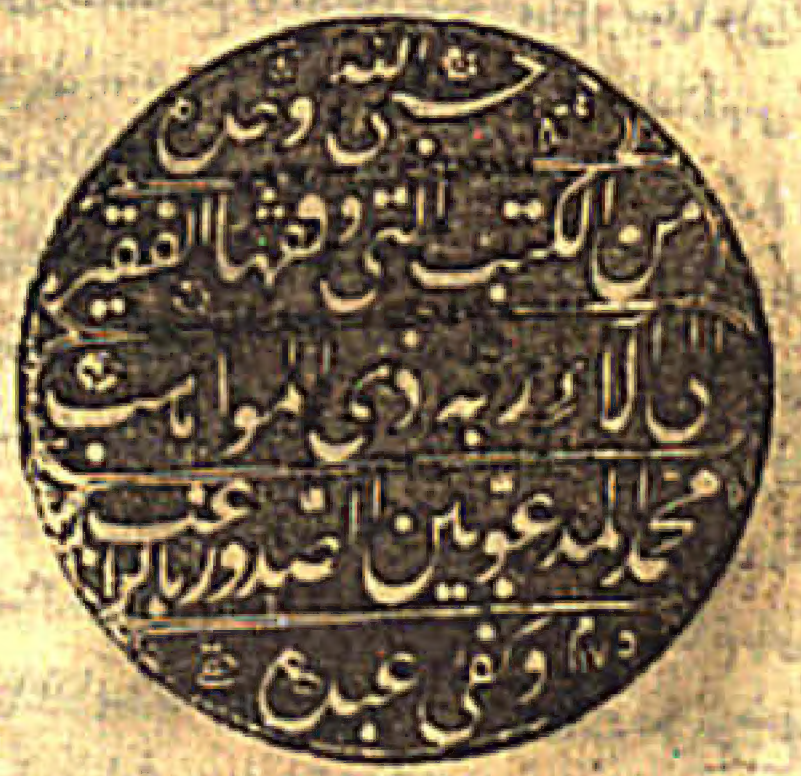 حسبى الله وحده
من الكتب التى وقفها الفقير
الى آلاء ربه ذى المواهب
محمد المدعو بين الصدور بالراغب
وكفى عبده